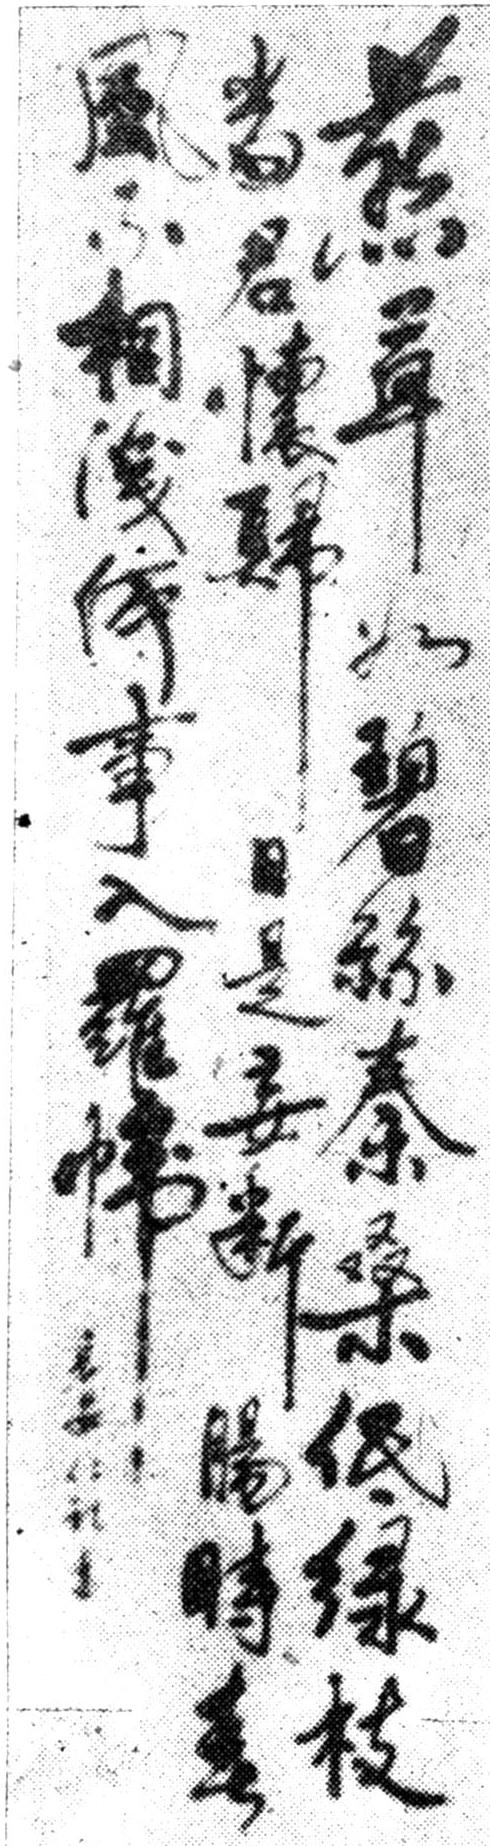 燕草如碧絲秦桑低緑枝
當君懷歸日是妾断腸時春
風不相識何事入羅幃